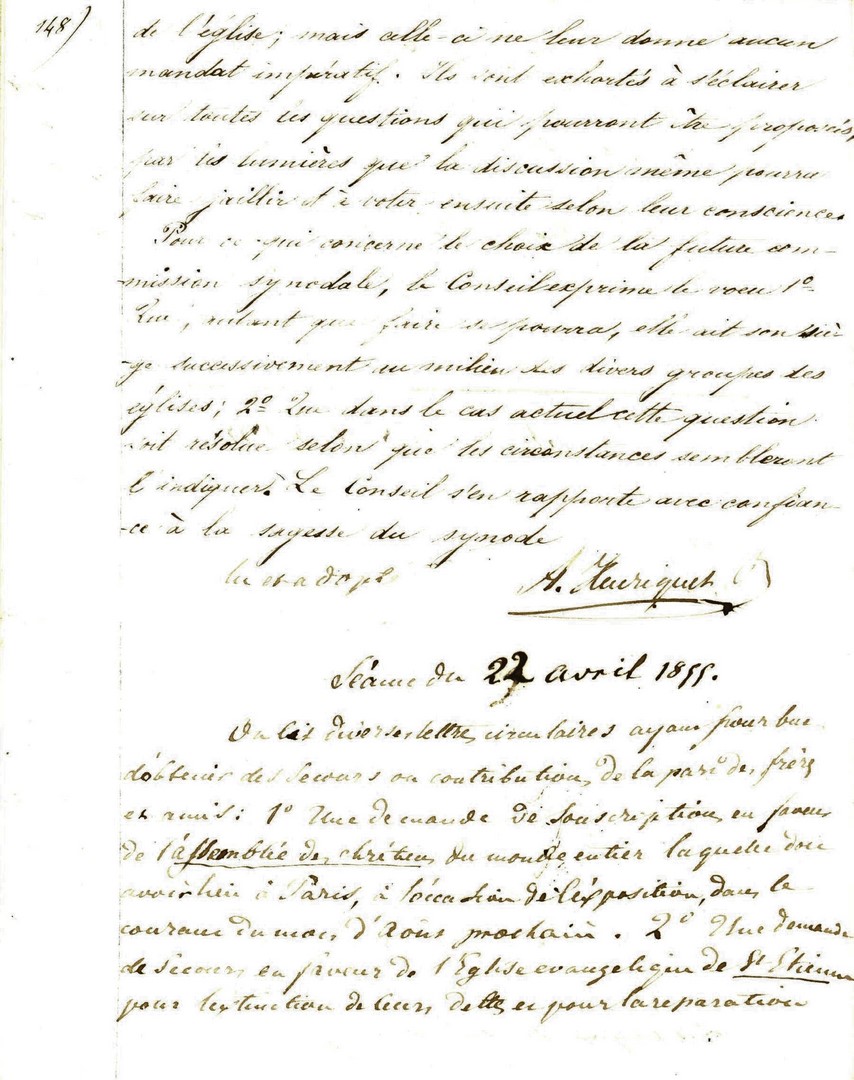 148)
de l'église; mais celle-ci ne leur donne aucun
mandat impératif. Ils sont exhortés à s'éclairer
sur toutes les questions qui pourront être proposées,
par les lumières que la discussion même pourra
faire jaillir et à voter ensuite selon leur conscience.
Pour ce qui concerne le choix de la future com-
-mission synodale, le Conseil exprime le voeu 1º
Que, autant que faire se pourra, elle ait son siè-
-ge successivement au milieu des divers groupes des
églises; 2º Que dans le cas actuel cette question
soit résolue selon que les circonstances sembleront
l'indiquer. Le Conseil s'en rapporte avec confian-
-ce à la sagesse du synode
lu et adopté
A. Henriquet
Séance du 22 avril 1855.
On lit diverses lettres circulaires ayant pour but
d'obtenir des secours ou contributions de la part des frères
et amis: 1º Une demande de souscriptions en faveur
de l'assemblée des chrétiens du monde entier laquelle doit
avoir lieu à Paris, à l'occasion de l'exposition, dans le
courant du mois d'Août prochain. 2º Une demande
de secours en faveur de l'Eglise evangelique de St Etienne
pour l'extinction de leurs dettes et pour la reparation